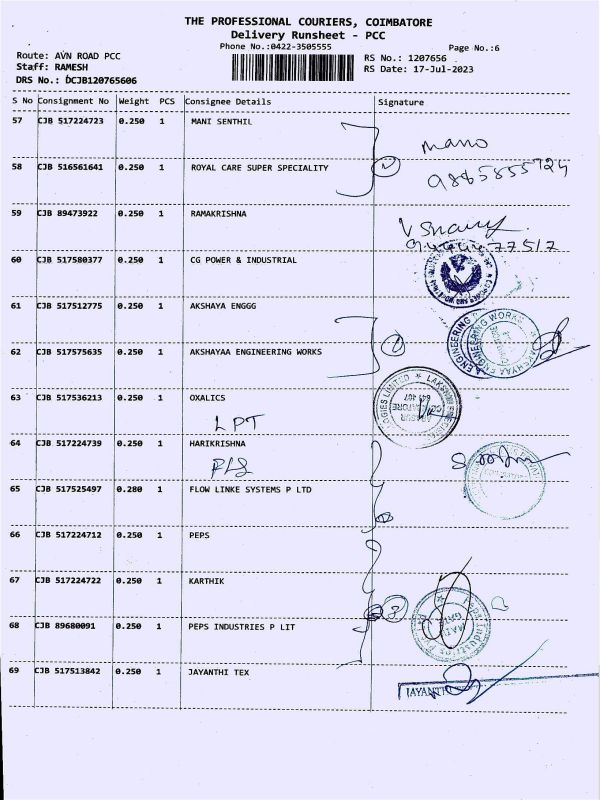 THE PROFESSIONAL COURIERS, COIMBATORE
Delivery Runsheet - PCC
Phone No.:0422-3505555
Page No.:6
Route: AVN ROAD PCC
Staff: RAMESH
DRS No.: DCJB120765606
RS No.: 1207656
RS Date: 17-Jul-2023
S No Consignment No Weight PCS Consignee Details Signature
57 CJB 517224723 0.250 1 MANI SENTHIL
mano
58 CJB 516561641 0.250 1 ROYAL CARE SUPER SPECIALITY
59 CJB 89473922 0.250 1 RAMAKRISHNA
60 CJB 517580377 0.250 1 CG POWER & INDUSTRIAL
61 CJB 517512775 0.250 1 AKSHAYA ENGGG
62 CJB 517575635 0.250 1 AKSHAYAA ENGINEERING WORKS
63 CJB 517536213 0.250 1 OXALICS
LPT
64 CJB 517224739 0.250 1 HARIKRISHNA
65 CJB 517525497 0.280 1 FLOW LINKE SYSTEMS P LTD
66 CJB 517224712 0.250 1 PEPS
67 CJB 517224722 0.250 1 KARTHIK
68 CJB 89680091 0.250 1 PEPS INDUSTRIES P LIT
69 CJB 517513842 0.250 1 JAYANTHI TEX
JAYANTHI